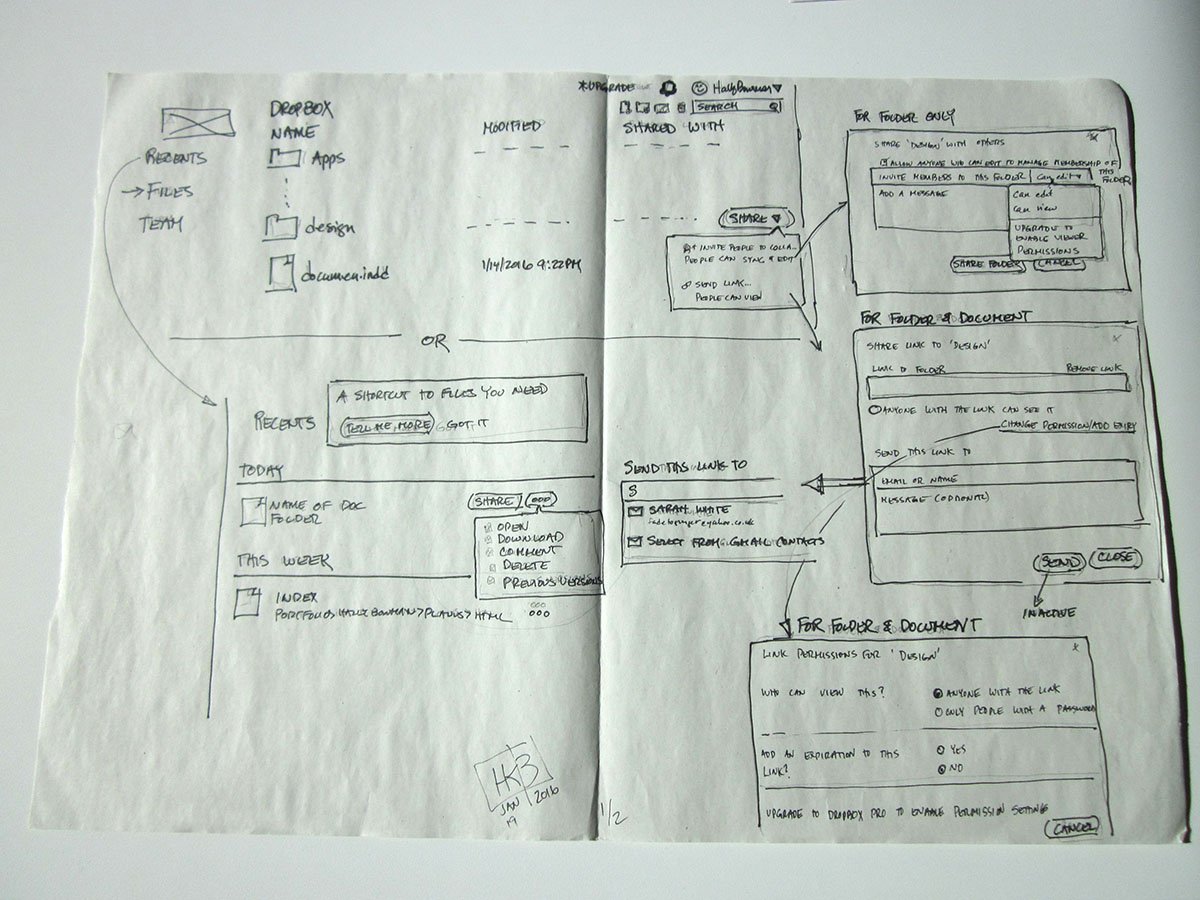 *UPGRADE
DROPBOX
SEARCH
NAME
MODIFIED
SHARED WITH
RECENTS
Apps
→ FILES
TEAM
design
SHARE
documen.indd
1/14/2016 9:22PM
+ INVITE PEOPLE TO COLLA...
PEOPLE CAN SYNC & EDIT
SEND LINK...
PEOPLE CAN VIEW
OR
FOR FOLDER ONLY
SHARE 'DESIGN' WITH OTHERS
X
ALLOW ANYONE WHO CAN EDIT TO MANAGE MEMBERSHIP OF
THIS
FOLDER
INVITE MEMBERS TO THIS FOLDER
Can edit
ADD A MESSAGE
Can edit
Can view
UPGRADE TO
ENABLE VIEWER
PERMISSIONS
SHARE FOLDER
CANCEL
FOR FOLDER & DOCUMENT
SHARE LINK TO 'DESIGN'
X
LINK TO FOLDER
REMOVE LINK
ANYONE WITH THE LINK CAN SEE IT
CHANGE PERMISSION/ADD EXPIRY
SEND THIS LINK TO
EMAIL OR NAME
MESSAGE (OPTIONAL)
SEND
CLOSE
INACTIVE
RECENTS
A SHORTCUT TO FILES YOU NEED
TELL ME MORE
GOT IT
TODAY
NAME OF DOC
FOLDER
SHARE
ooo
OPEN
DOWNLOAD
COMMENT
DELETE
PREVIOUS VERSIONS
THIS WEEK
INDEX
ooo
SEND THIS LINK TO
S
SARAH WHITE
SELECT FROM GMAIL CONTACTS
FOR FOLDER & DOCUMENT
LINK PERMISSIONS FOR 'DESIGN'
X
WHO CAN VIEW THIS?
ANYONE WITH THE LINK
ONLY PEOPLE WITH A PASSWORD
ADD AN EXPIRATION TO THIS
LINK?
YES
NO
UPGRADE TO DROPBOX PRO TO ENABLE PERMISSION SETTINGS
CANCEL
HKB
JAN 2016
19
1/2